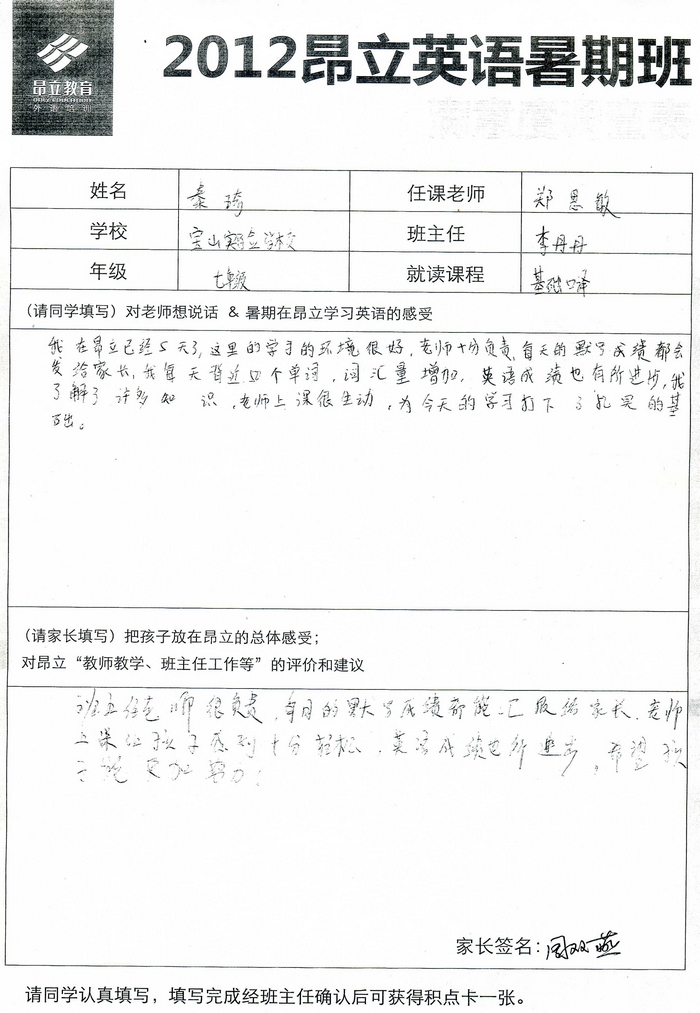 昂立教育
ONLY EDUCATION
外语培训
2012昂立英语暑期班
姓名 秦琦 任课老师 郑思敏
学校 宝山实验学校 班主任 李丹丹
年级 七年级 就读课程 基础口译
(请同学填写)对老师想说话 & 暑期在昂立学习英语的感受
我在昂立已经5天了,这里的学习的环境很好,老师十分负责,每天的默写成绩都会
发给家长,我每天背近50个单词,词汇量增加,英语成绩也有所进步,我
了解了许多知识,老师上课很生动,为今天的学习打下了扎实的基
础。
(请家长填写)把孩子放在昂立的总体感受;
对昂立“教师教学、班主任工作等”的评价和建议
班主任老师很负责,每日的默写成绩都能汇报给家长,老师
上课让孩子感到十分轻松,英语成绩也所进步,希望孩
子能更加努力!
家长签名:周双燕
请同学认真填写,填写完成经班主任确认后可获得积点卡一张。